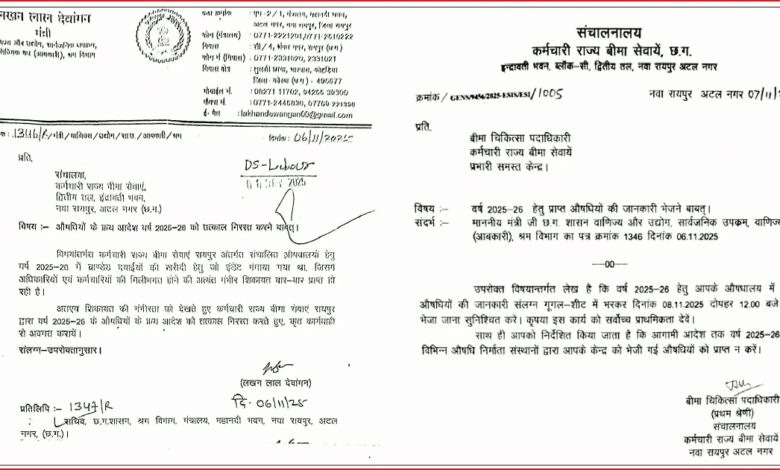 लखन लाल देवांगन
मंत्री
वाणिज्य और उद्योग, सार्वजनिक उपक्रम,
वाणिज्यिक कर (आबकारी), श्रम विभाग
अटल नगर, नवा रायपुर, जिला रायपुर
फोन (मंत्रालय) : 0771-2221201/771-2510222
निवास : सी/4, शंकर नगर, रायपुर (छ.ग.)
फोन नं (निवास) : 0771-2331020, 2331021
मोबाईल नं. : 08271 11702, 94255 39300
फैक्स नं. : 0771-2445830, 07759-221390
ई- मेल : lakhandewangan60@gmail.com
1346/R/मंत्री/वाणिज्य/उद्योग/सा.उ./आबकारी/श्रम
दिनांक :- 06/11/2025
प्रति,
DS-Labour
संचालक,
कर्मचारी राज्य बीमा सेवाएं,
द्वितीय तल, इंद्रावती भवन,
नवा रायपुर, अटल नगर (छ.ग.)
विषय :- औषधियों के क्रय आदेश वर्ष 2025-26 को तत्काल निरस्त करने बाबत्।
विषयांतर्गत कर्मचारी राज्य बीमा सेवाएं रायपुर अंतर्गत संचालित औषधालयों हेतु
वर्ष 2025-26 में ब्राण्डेड दवाईयों की खरीदी हेतु जो इंडेंट मंगाया गया था, जिसमें
अधिकारियों एवं कर्मचारियों की मिलीभगत होने की अत्यंत गंभीर शिकायत बार-बार प्राप्त हो
रही है।
अतएव शिकायत की गंभीरता को देखते हुए कर्मचारी राज्य बीमा सेवाएं रायपुर
द्वारा वर्ष 2025-26 के औषधियों के क्रय आदेश को तत्काल निरस्त करते हुए, कृत कार्यवाही
से अवगत करायें।
संलग्न-उपरोक्तानुसार।
(लखन लाल देवांगन)
दि. 06/11/25
प्रतिलिपि :- 1347/R
सचिव, छ.ग.शासन, श्रम विभाग, मंत्रालय, महानदी भवन, नवा रायपुर, अटल
नगर, (छ.ग.)।
संचालनालय
कर्मचारी राज्य बीमा सेवायें, छ.ग.
इन्द्रावती भवन, ब्लॉक-सी, द्वितीय तल, नवा रायपुर अटल नगर
क्रमांक /GENS/9456/2025-ESIS/ESI/1005
नवा रायपुर अटल नगर 07/11/
प्रति.
बीमा चिकित्सा पदाधिकारी
कर्मचारी राज्य बीमा सेवायें
प्रभारी समस्त केन्द्र।
विषय :- वर्ष 2025-26 हेतु प्राप्त औषधियों की जानकारी भेजने बाबत्।
संदर्भ :- माननीय मंत्री जी छ.ग. शासन वाणिज्य और उद्योग, सार्वजनिक उपक्रम, वाणिज्य
(आबकारी), श्रम विभाग का पत्र क्रमांक 1346 दिनांक 06.11.2025
—00—
उपरोक्त विषयान्तर्गत लेख है कि वर्ष 2025-26 हेतु आपके औषधालय में
औषधियों की जानकारी संलग्न गूगल-शीट में भरकर दिनांक 08.11.2025 दोपहर 12.00 बजे
भेजा जाना सुनिश्चित करें। कृपया इस कार्य को सर्वोच्च प्राथमिकता देवें।
साथ ही आपको निर्देशित किया जाता है कि आगामी आदेश तक वर्ष 2025-26
विभिन्न औषधि निर्माता संस्थानों द्वारा आपके केन्द्र को भेजी गई औषधियों को प्राप्त न करें।
बीमा चिकित्सा पदाधिकारी
(प्रथम श्रेणी)
संचालनालय
कर्मचारी राज्य बीमा सेवायें
नवा रायपुर अटल नगर